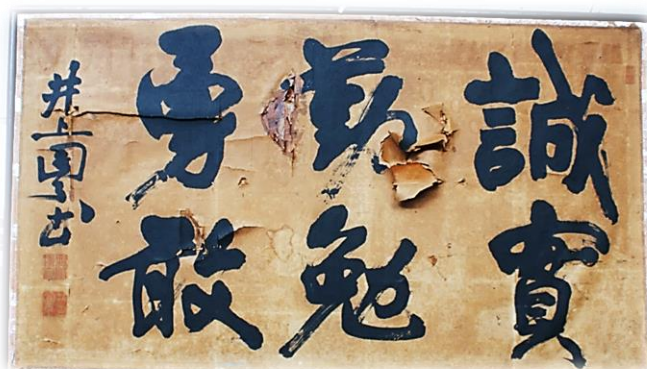 誠實
勤勉
勇敢
井上圓了書